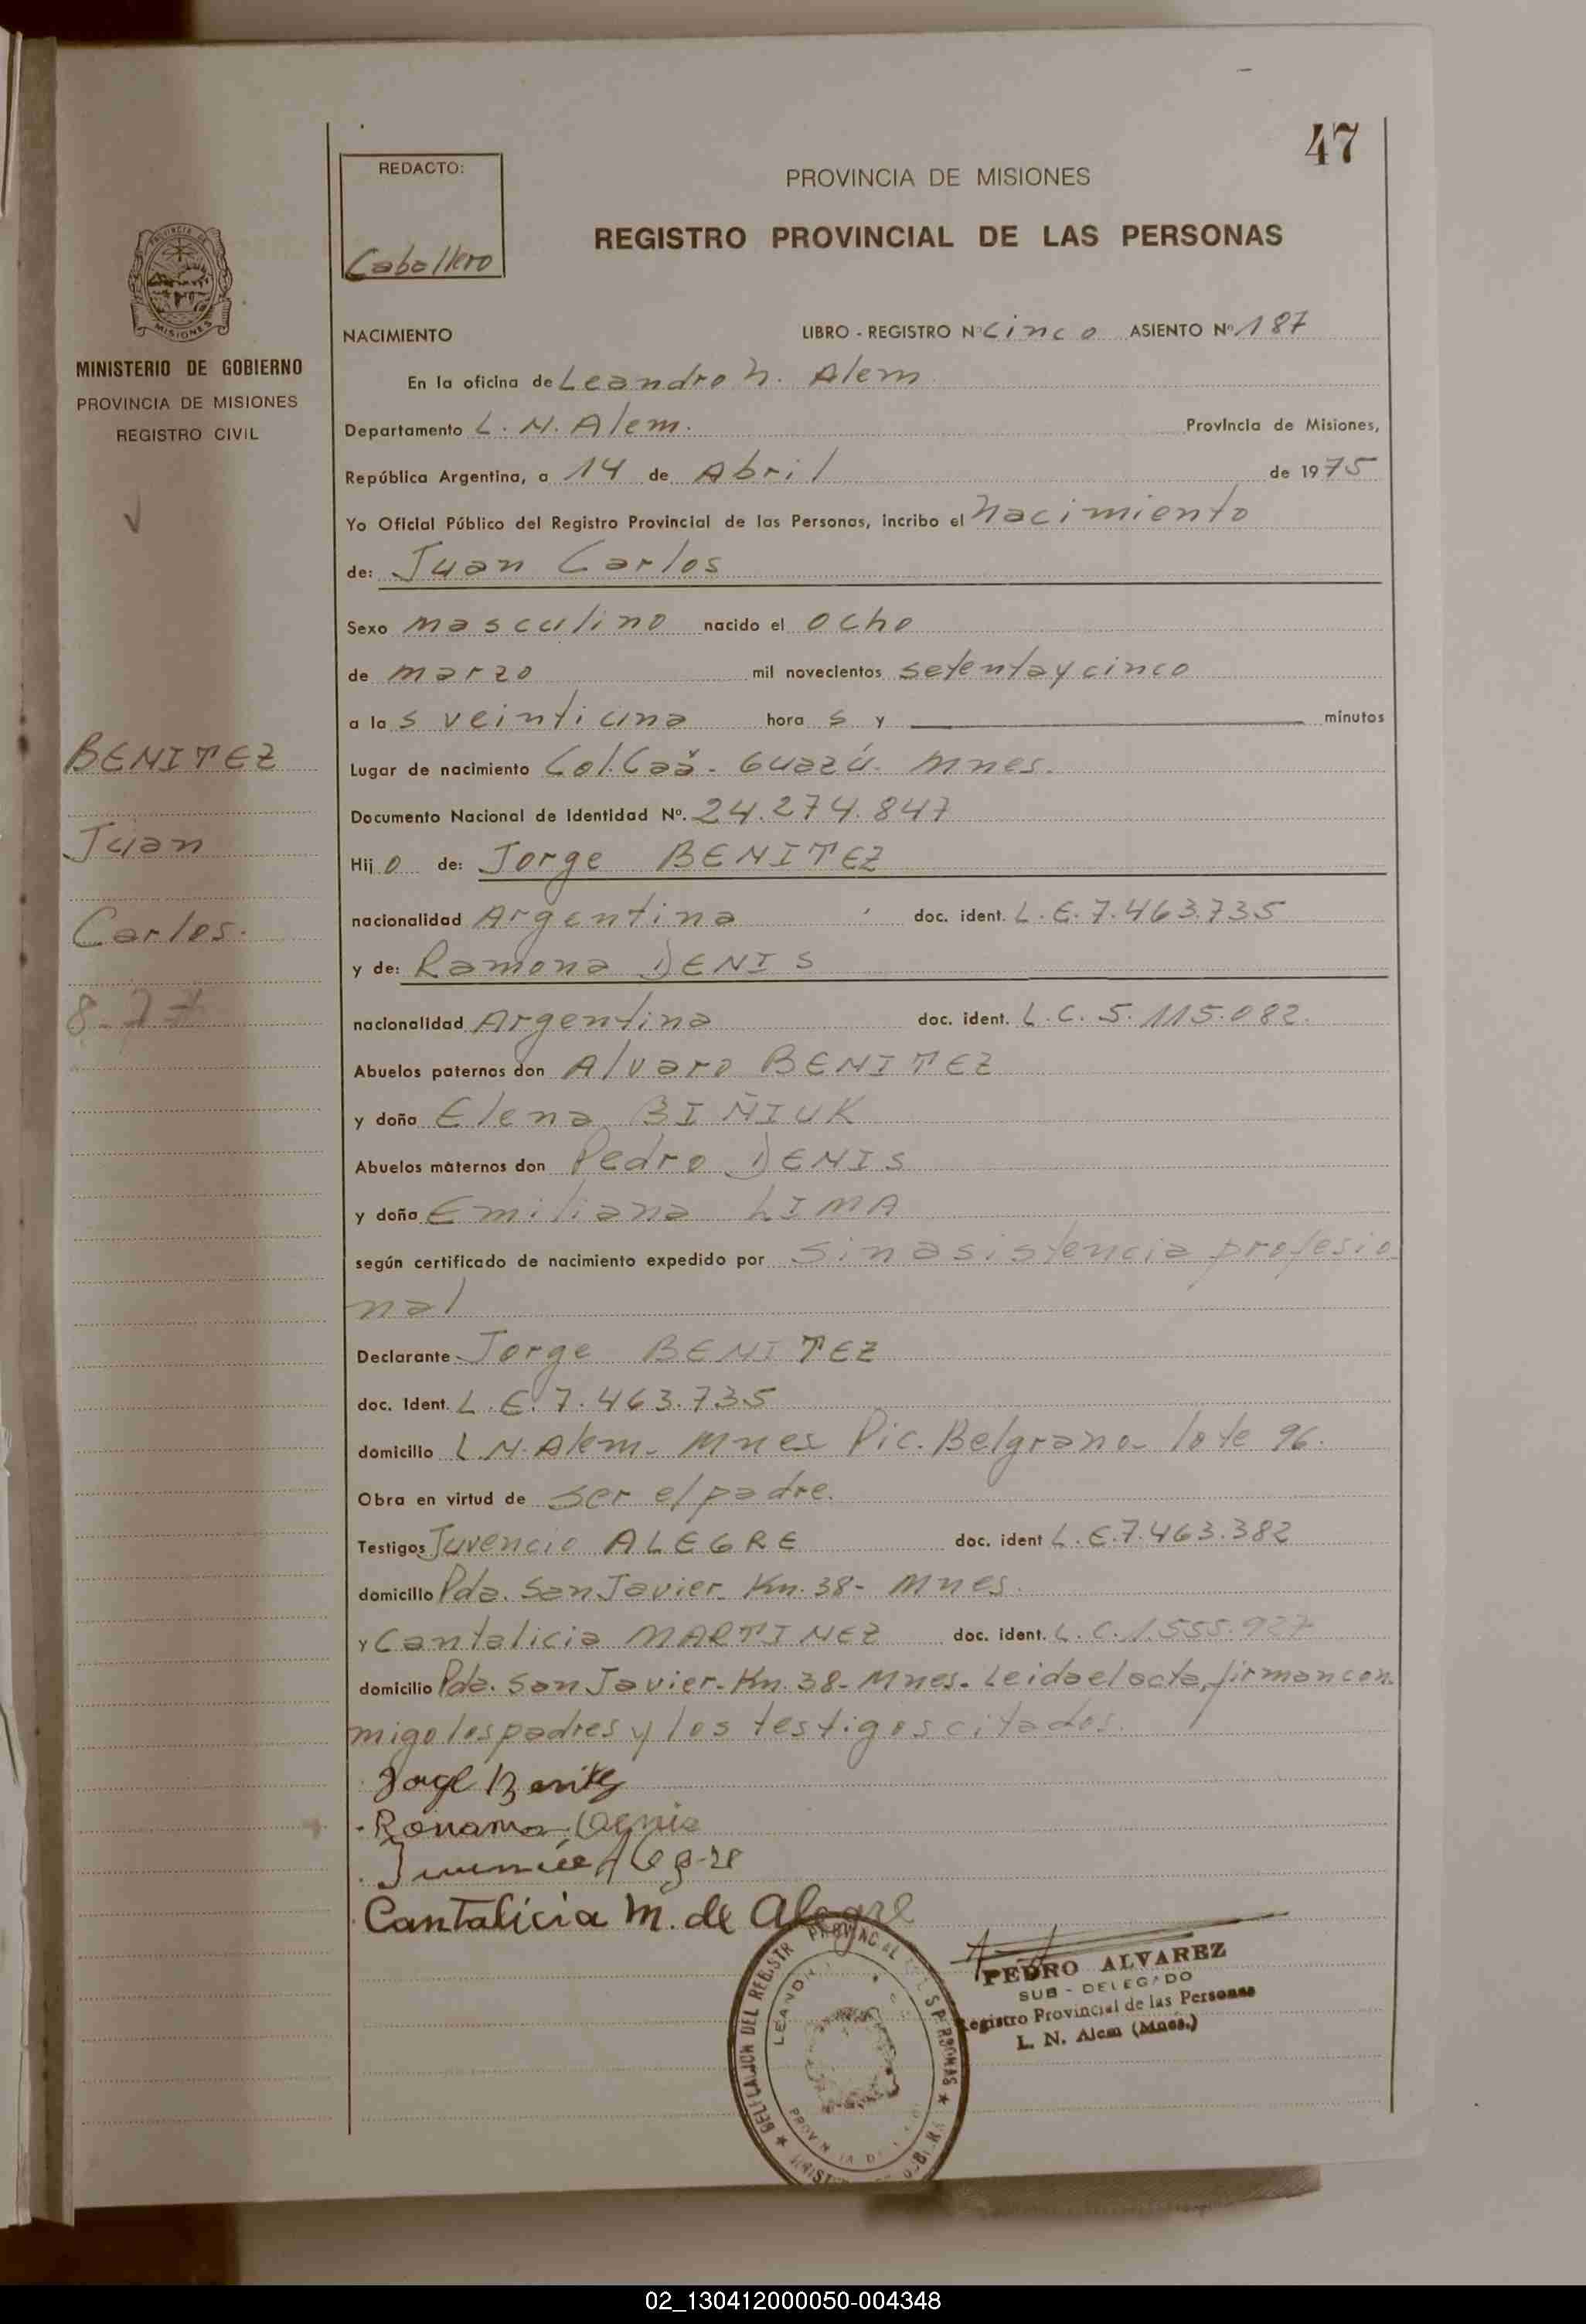 47
REDACTO:
Caballero
PROVINCIA DE MISIONES
REGISTRO PROVINCIAL DE LAS PERSONAS
PROVINCIA DE
MISIONES
MINISTERIO DE GOBIERNO
PROVINCIA DE MISIONES
REGISTRO CIVIL
BENITEZ
Juan
Carlos.
NACIMIENTO LIBRO - REGISTRO Nº cinco ASIENTO Nº 187
En la oficina de Leandro N. Alem
Departamento L. N. Alem. Provincia de Misiones,
República Argentina, a 14 de Abril de 1975
Yo Oficial Público del Registro Provincial de las Personas, incribo el Nacimiento
de: Juan Carlos
Sexo masculino nacido el ocho
de marzo mil novecientos setenta y cinco
a las veintiuna horas y minutos
Lugar de nacimiento Col. Caá - Guazú. Mnes.
Documento Nacional de Identidad Nº. 24.274.847
Hijo de: Jorge BENITEZ
nacionalidad Argentina doc. ident. L.E. 7.463.735
y de: Ramona DENIS
nacionalidad Argentina doc. ident. L.C. 5.115.082.
Abuelos paternos don Alvaro BENITEZ
y doña Elena BIÑIUK
Abuelos maternos don Pedro DENIS
y doña Emiliana LIMA
según certificado de nacimiento expedido por sin asistencia profesio
nal
Declarante Jorge BENITEZ
doc. Ident. L.E. 7.463.735
domicilio L.N. Alem - Mnes Pic. Belgrano - lote 96.
Obra en virtud de ser el padre.
Testigos Juvencio ALEGRE doc. ident L.E. 7.463.382
domicilio Pda. San Javier - Km. 38 - Mnes.
y Cantalicia MARTINEZ doc. ident. L.C. 1.555.927
domicilio Pda. San Javier - Km. 38 - Mnes. Leida el acta, firman con
migo los padres y los testigos citados.
Jorge Benitez
Ramona Denis
Juvencio Alegre
Cantalicia M. de Alegre
DELEGACION DEL REGISTRO PROVINCIAL DE LAS PERSONAS
PEDRO ALVAREZ
SUB - DELEGADO
Registro Provincial de las Personas
L. N. Alem (Mnes.)
02_130412000050-004348